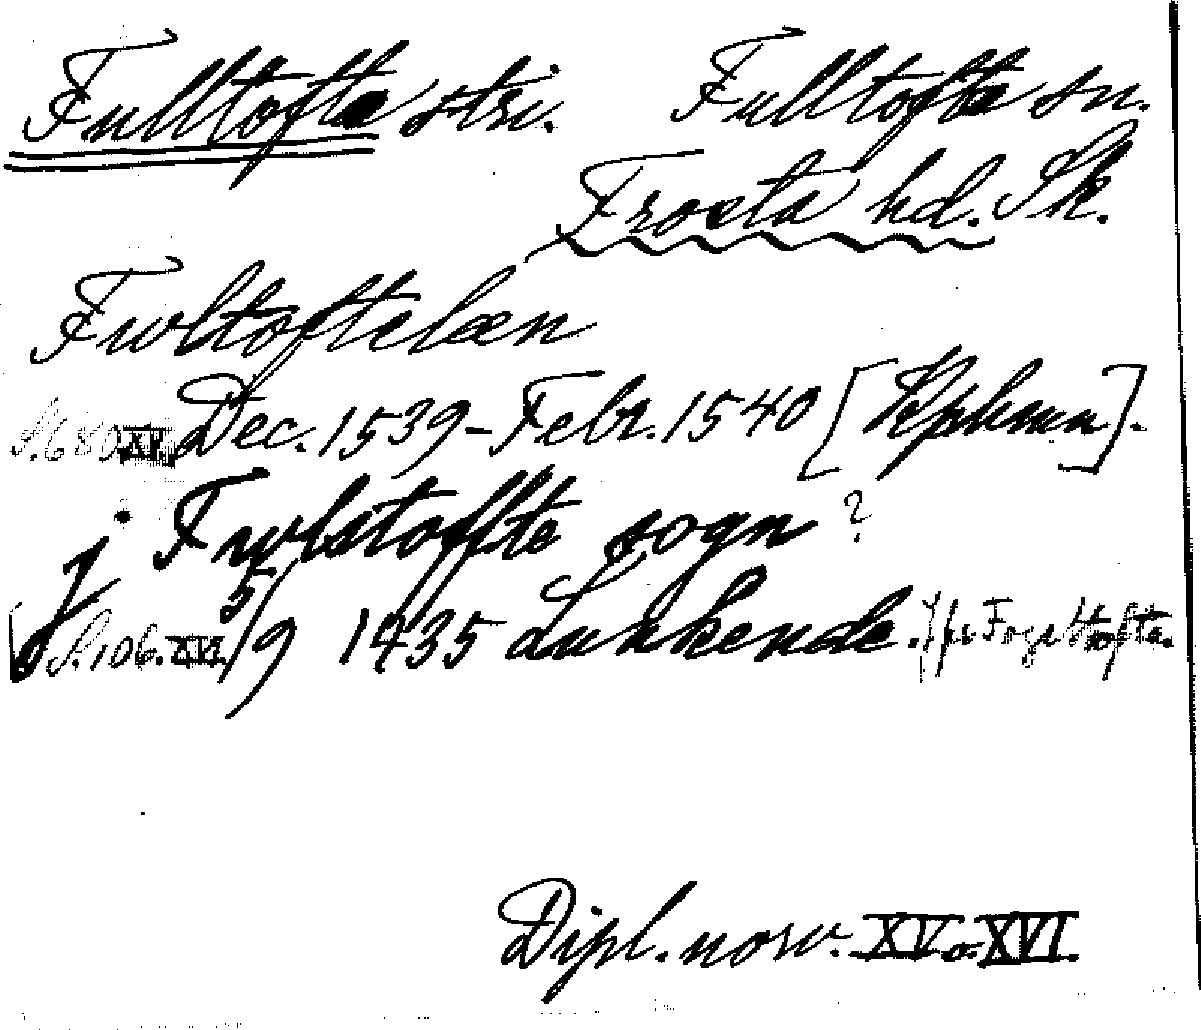 Fulltofta stri. Fulltofta sn.
Frosta hd. Sk.
Fwltoftelæn
S. 680. XV. Dec. 1539-Febr. 1540 [Kphmn].
j Fwlstoffte sogn ?
S. 106. XVI. 5/9 1435 Lukkende. Jfr Fogelstofta.
Dipl. norv. XV o. XVI.